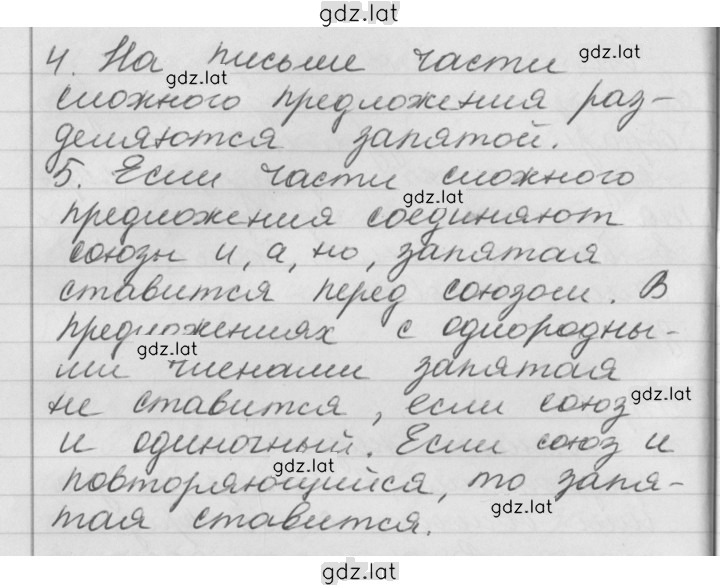 gdz.lat
4. На письме части gdz.lat
gdz.lat
сложного предложения раз-
деляются запятой.
5. Если части сложного
gdz.lat
предложения соединяют
союзы и, а, но, запятая
ставится перед союзом. В
предложениях с однородны-
gdz.lat
ми членами запятая
не ставится, если союз gdz.lat
и одиночный. Если союз и
gdz.lat
повторяющийся, то запя-
тая ставится. gdz.lat
gdz.lat